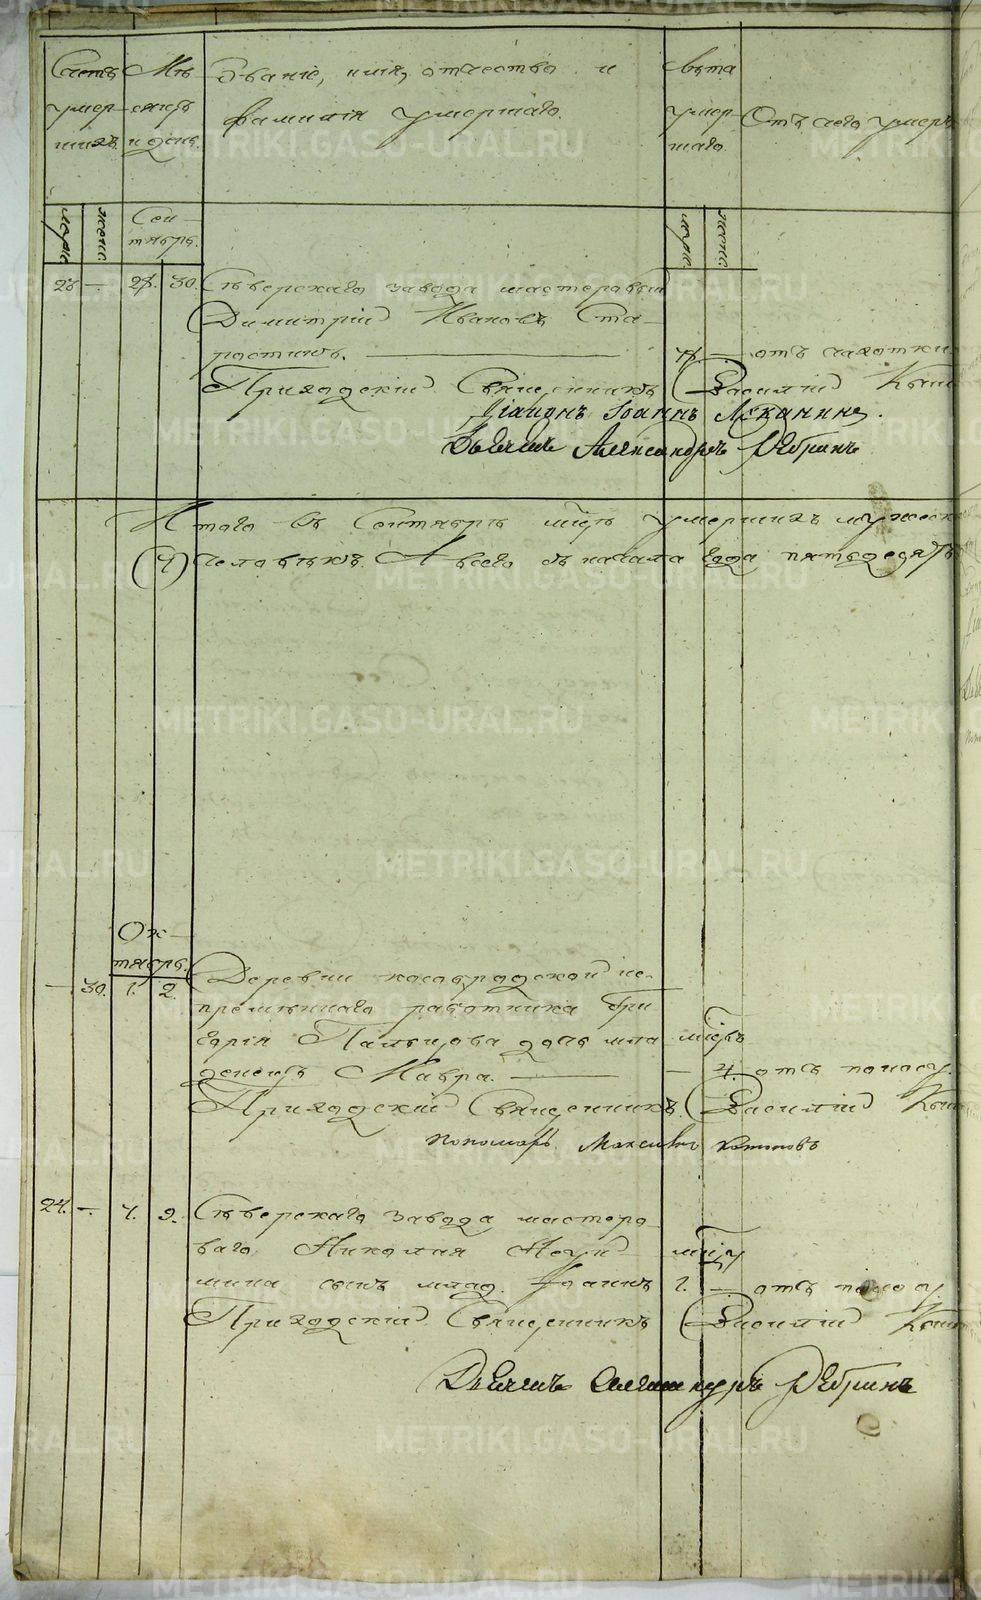 Счетъ умершихъ
Мѣсяцъ и день.
Званіе, имя, отчество и
фамилія умершаго.
Лѣта умершаго.
Отъ чего умеръ
муж.
женс.
Сентябрь.
муж.
женс.
23 — 27. 30. Сѣверскаго завода мастеровый
Димитрій Ивановъ Ста-
ростинъ. — отъ чахотки.
Приходскій Священникъ Василій
Діаконъ Іоаннъ Лѣканинъ.
Дьячекъ Александръ Рябринъ
Итого въ Сентябрѣ мцѣ умершихъ мужеск
(4) человѣкъ. А всего съ начала года пятьдесятъ
Октябрь.
— 30. 1. 2. Деревни Кособродской не-
премѣннаго работника Гри
горія Пальцова дочь мла мцвъ
денецъ Мавра. — — 4. отъ поносу.
Приходскій Священникъ Василій
пономарь Максимъ
24. — 7. 9. Сѣверскаго завода мастеро
ваго Николая мцу
мина сынъ млад. Іоаннъ 1. — отъ поносу.
Приходскій Священникъ Василій
Дьячекъ Александръ Рябринъ
METRIKI.GASU-URAL.RU